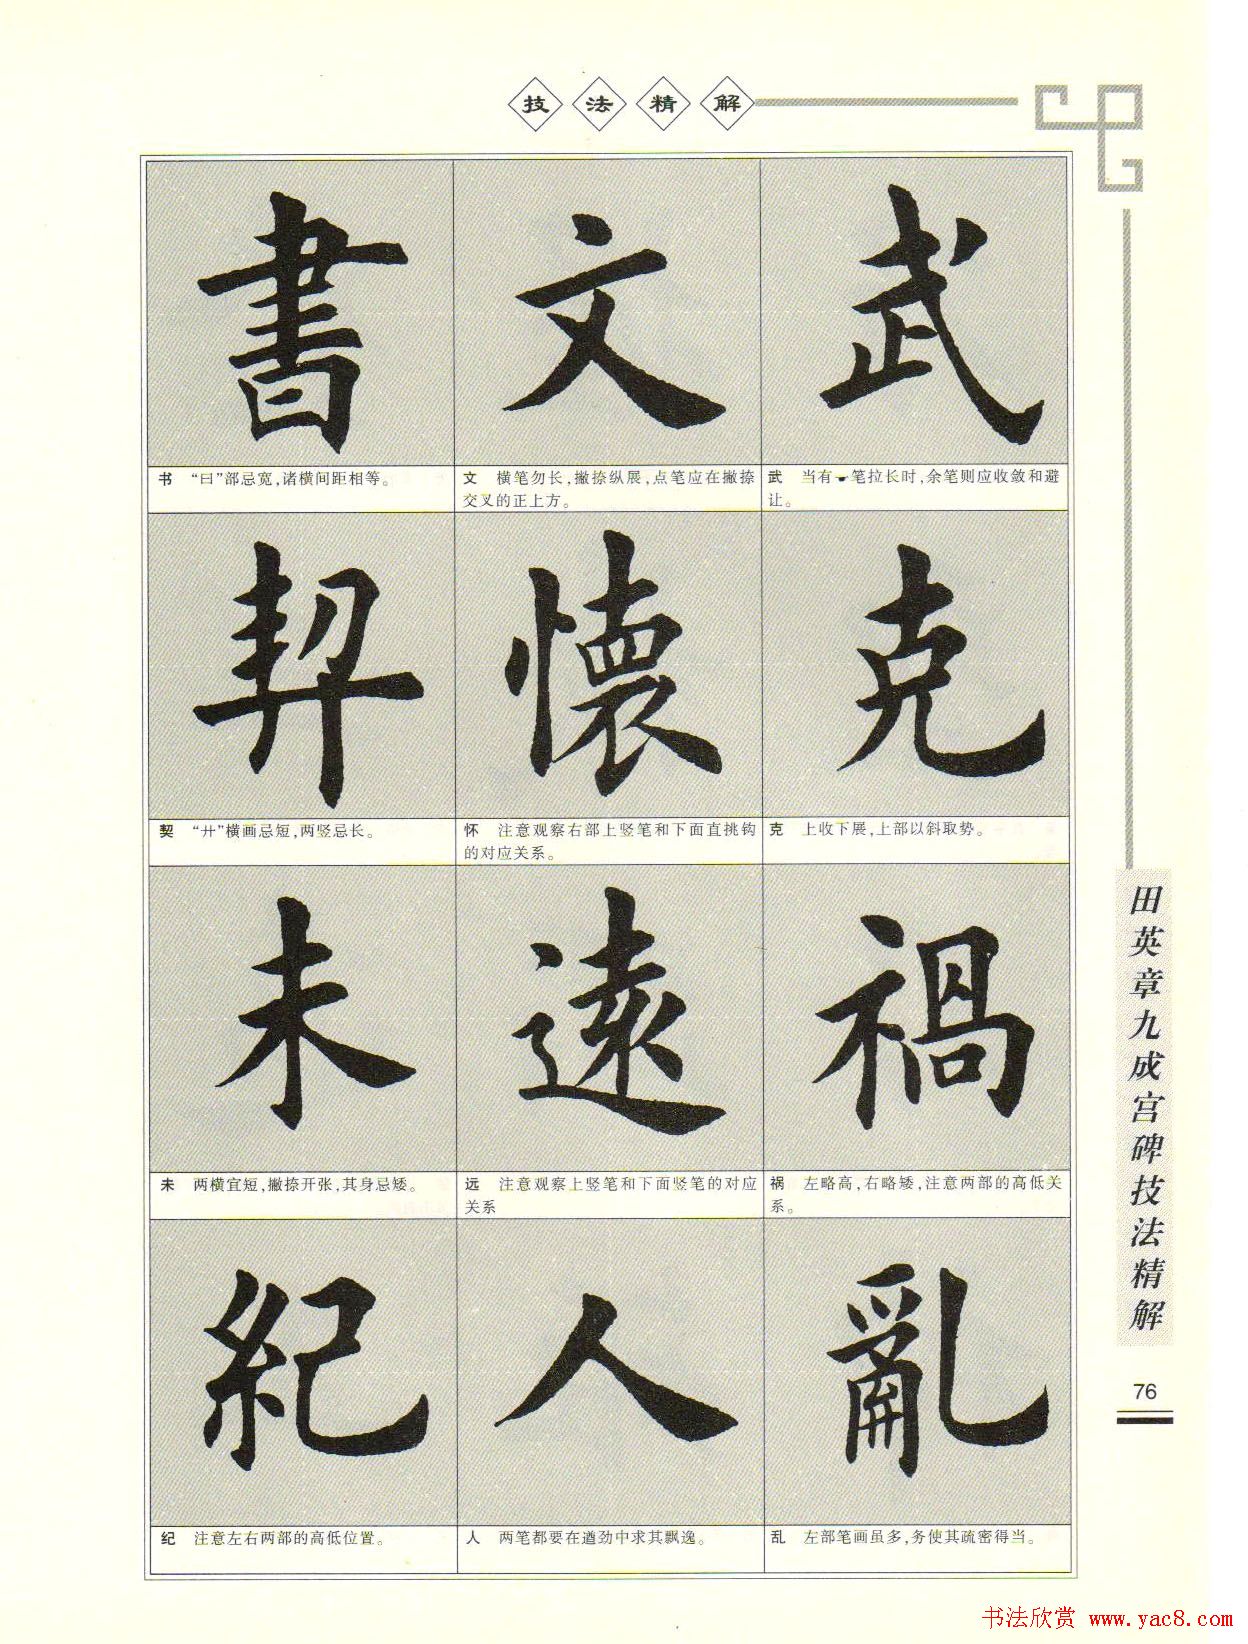 技法精解
書 文 武
书 “曰”部忌宽,诸横间距相等。
文 横笔勿长,撇捺纵展,点笔应在撇捺
交叉的正上方。
武 当有一笔拉长时,余笔则应收敛和避
让。
契 懷 克
契 “廾”横画忌短,两竖忌长。
怀 注意观察右部上竖笔和下面直挑钩
的对应关系。
克 上收下展,上部以斜取势。
未 遠 禍
未 两横宜短,撇捺开张,其身忌矮。
远 注意观察上竖笔和下面竖笔的对应
关系
祸 左略高,右略矮,注意两部的高低关
系。
紀 人 亂
纪 注意左右两部的高低位置。
人 两笔都要在遒劲中求其飘逸。
乱 左部笔画虽多,务使其疏密得当。
田英章九成宫碑技法精解
76
书法欣赏 www.yac8.com